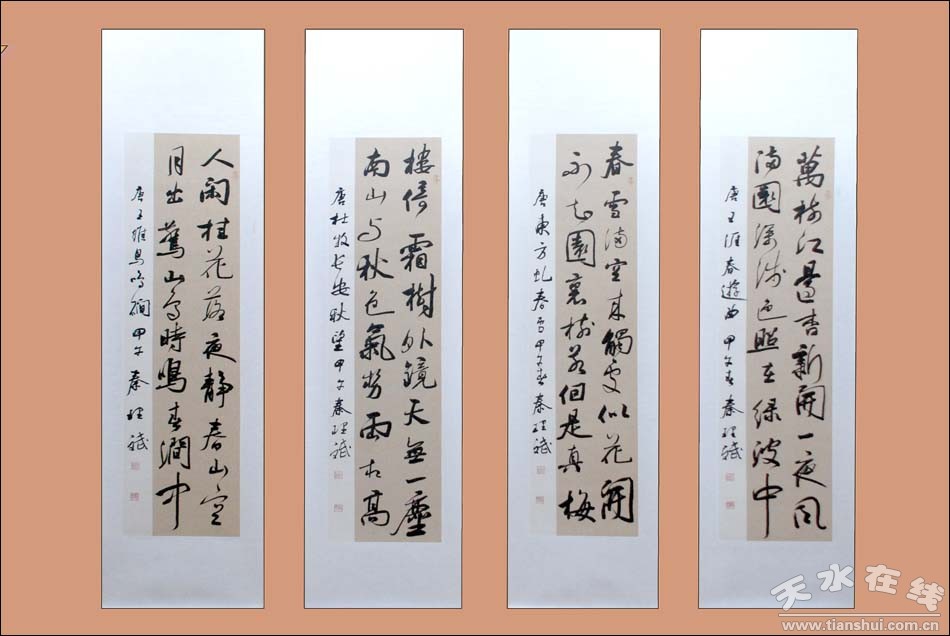 萬樹江邊杏新開一夜風
滿園深淺色照在綠波中
唐王涯春遊曲甲午春秦理斌
春雪滿空來觸處似花開
不知園裏樹若個是真梅
唐東方虬春雪甲午春秦理斌
樓倚霜樹外鏡天無一塵
南山与秋色氣勢兩相高
唐杜牧長安秋望甲午秦理斌
人閑桂花落夜靜春山空
月出驚山鳥時鳴春澗中
唐王維鳥鳴澗甲午秦理斌
天水在线
www.tianshui.com.cn